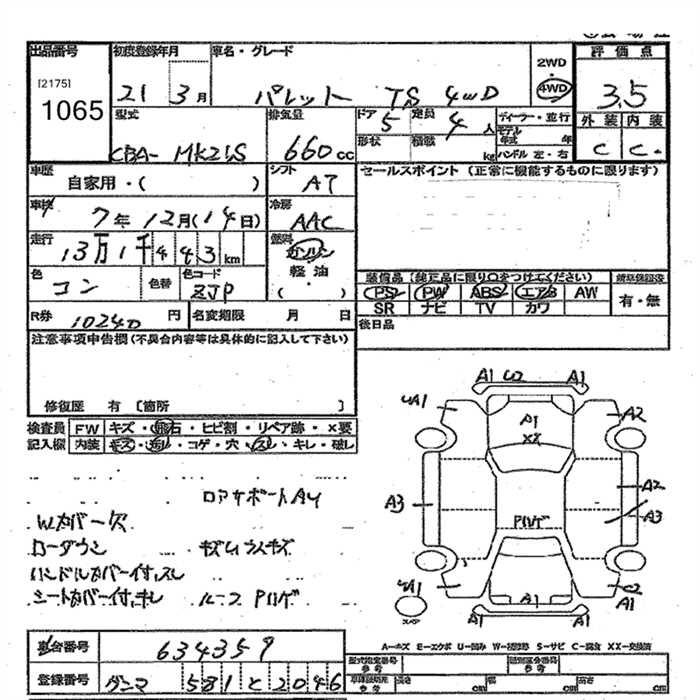 出品番号 初度登録年月 車名・グレード 2WD 評価点
[2175] 1065 21 3月 パレット TS 4WD 4WD 3.5
型式 排気量 ドア 5 定員 4人 ディーラー・並行 外装 内装
CBA-MK21S 660cc 形状 積載 kg モデル年式 年 ハンドル 左・右 C C
車歴 自家用・( ) シフト AT セールスポイント (正常に機能するものに限ります)
車検 7年12月(14日) 冷房 AAC
走行 13万1千443km 燃料 ガソリン 軽油 ( )
色 コン 色替 色コード ZJP 装備品 (純正品に限り○をつけてください) 新車保証書
PS PW ABS エアB AW 有・無
SR ナビ TV カワ
R券 10240円 名変期限 月 日 後日品
注意事項申告欄(不具合内容等は具体的に記入して下さい)
修復歴 有 [箇所 ]
検査員 FW キズ・飛石・ヒビ割・リペア跡・×要
記入欄 内装 キズ・汚れ・コゲ・穴・スレ・キレ・破レ
A1 U2 A1
A1 A2
A1
XX
A2
A3 A3
Pハゲ
A1 U2
A1 A1
スペア
ロアサポートAU
Wカバー欠
ローダウン キズムラスキズ
ハンドルカバー付、スレ
シートカバー付、キレ ルーフPハゲ
A=キズ E=エクボ U=凹み W=補修跡 S=サビ C=腐食 XX=交換済
車台番号 634359 型式指定番号 参考 類別区分番号 参考
登録番号 グンマ 581 と 2046 車体設定所 参考 長さ cm 幅 cm 高さ cm